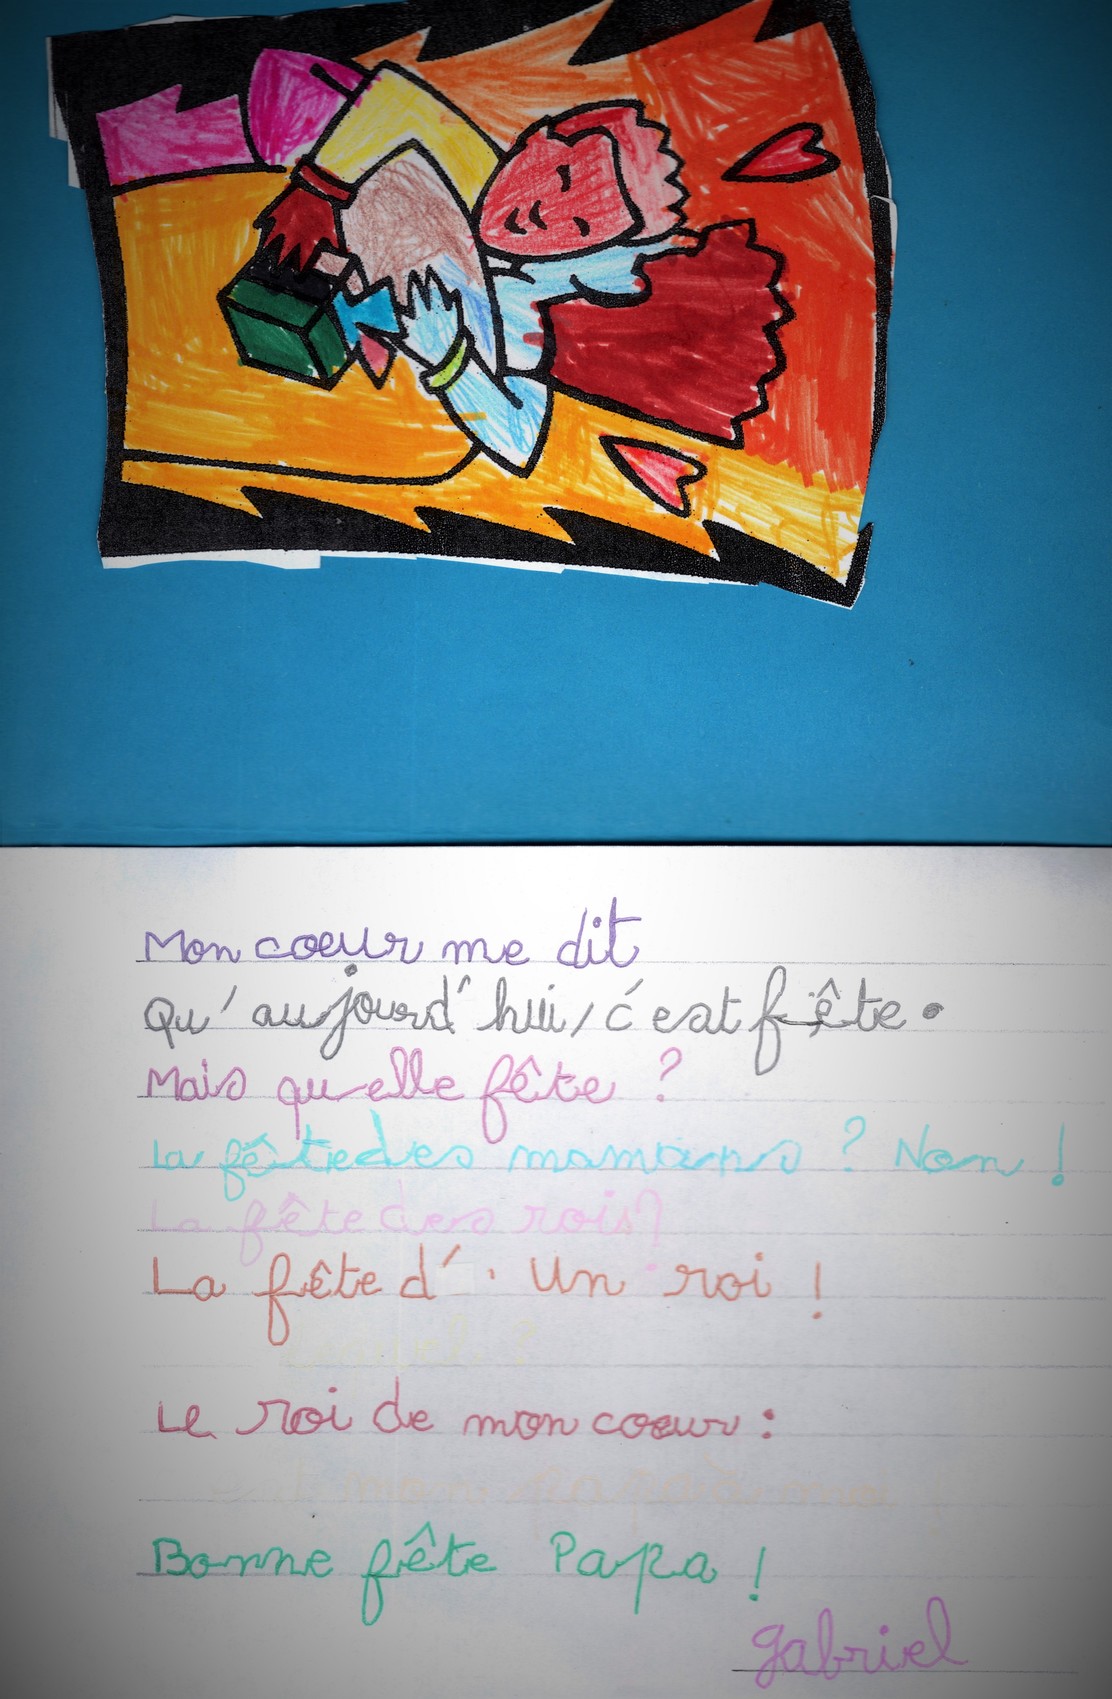 Mon coeur me dit
Qu'aujourd'hui, c'est fête.
Mais quelle fête ?
La fête des mamans ? Non !
La fête des rois ?
La fête d' un roi !
lequel ?
Le roi de mon coeur :
mon papa à moi !
Bonne fête Papa !
gabriel